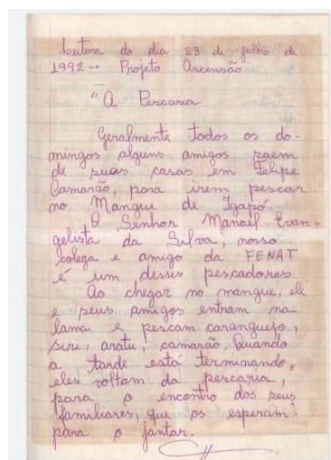 Leitura do dia 23 de julho de
1992 -- Projeto Ascensão
"A Pescaria
Geralmente todos os do-
mingos alguns amigos saem
de suas casas em Felipe
Camarão, para irem pescar
no Mangue de Igapó.
O Senhor Manoel Evan-
gelista da Silva, nosso
colega e amigo da FENAT
é um desses pescadores.
Ao chegar no mangue, ele
e seus amigos entram na
lama e pescam caranguejo,
siri, aratu, camarão. Quando
a tarde está terminando,
eles voltam da pescaria,
para o encontro dos seus
familiares, que os esperam
para o jantar.